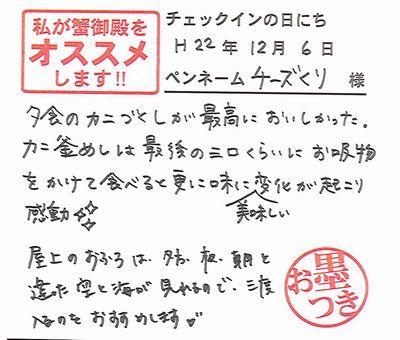 私が蟹御殿を
オススメ
します!!
チェックインの日にち
H22年12月6日
ペンネーム チーズくり 様
夕食のカニづくしが最高においしかった。
カニ釜めしは最後の三口くらいにお吸物
をかけて食べると更に味に変化が起こり
美味しい
感動✨
屋上のおふろは、夕方、夜、朝と
違った空と海が見れるので、三度
入るのをおすすめします♡
お墨つき